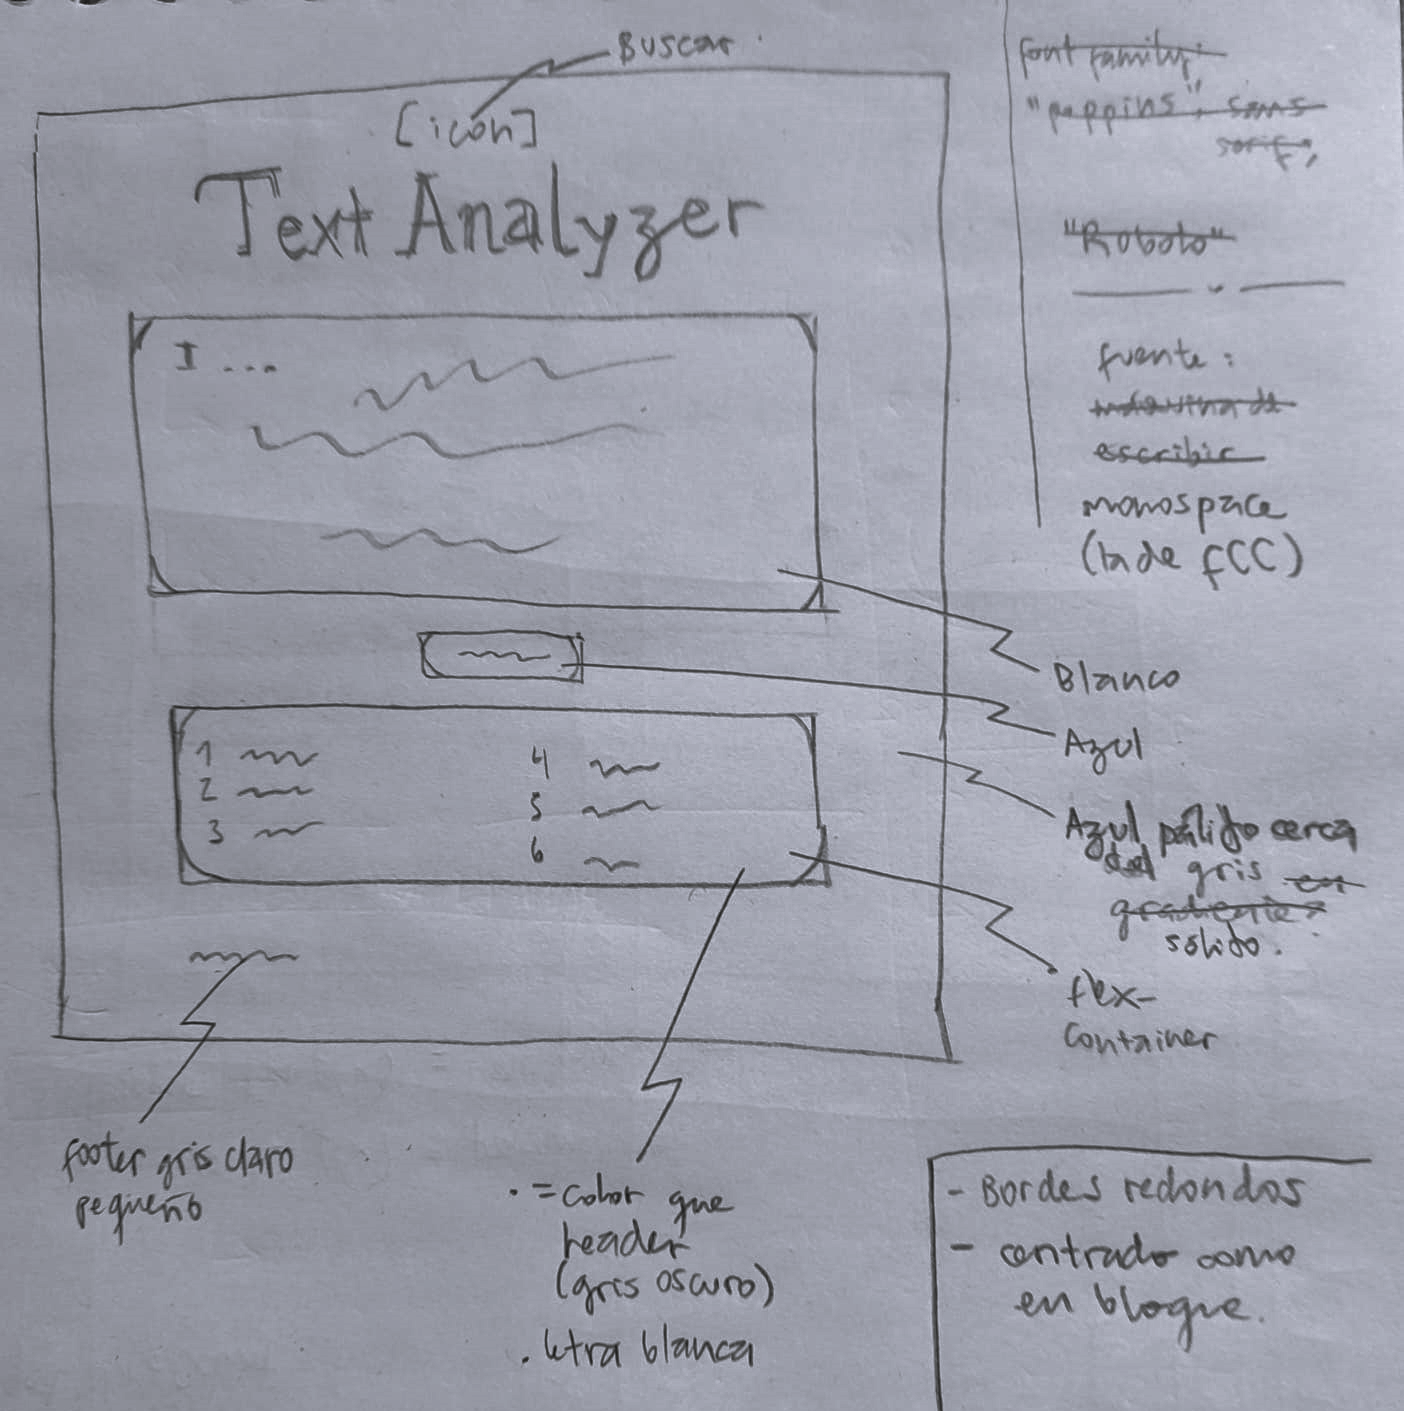 Buscar
[icon]
Text Analyzer
I ...
1
2
3
4
5
6
font family:
"poppins", sans
serif;
"Roboto"
fuente:
máquina de
escribir
monospace
(la de fCC)
Blanco
Azul
Azul pálido cerca
del gris en
gradiente
sólido.
flex-
container
footer gris claro
pequeño
. = color que
header
(gris oscuro)
. letra blanca
- Bordes redondos
- centrado como
en bloque.